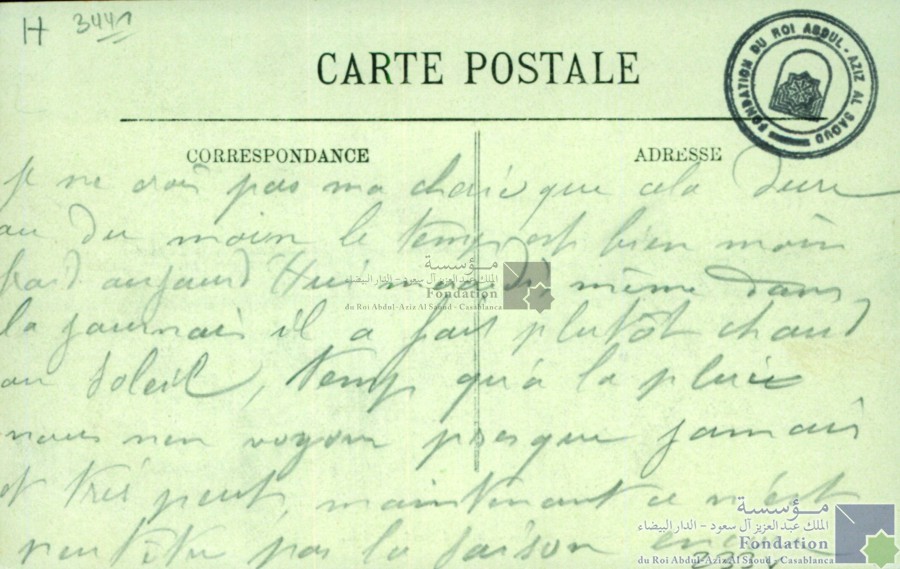 H 3441
CARTE POSTALE
FONDATION DU ROI ABDUL-AZIZ AL SAOUD
CORRESPONDANCE
ADRESSE
Je ne crois pas ma cherie que cela dure
au du moin le temps est bien moin
froid aujourd'hui mardi, même dans
la journais il a fait plutôt chaud
au soleil, temp qu'a la pluie
nous nen voyon presque jamais
et tres peut, maintenant ce n'est
peutêtre pas la saison encore
مؤسسة
الملك عبد العزيز آل سعود - الدار البيضاء
Fondation
du Roi Abdul-Aziz Al Saoud - Casablanca
مؤسسة
الملك عبد العزيز آل سعود - الدار البيضاء
Fondation
du Roi Abdul-Aziz Al Saoud - Casablanca